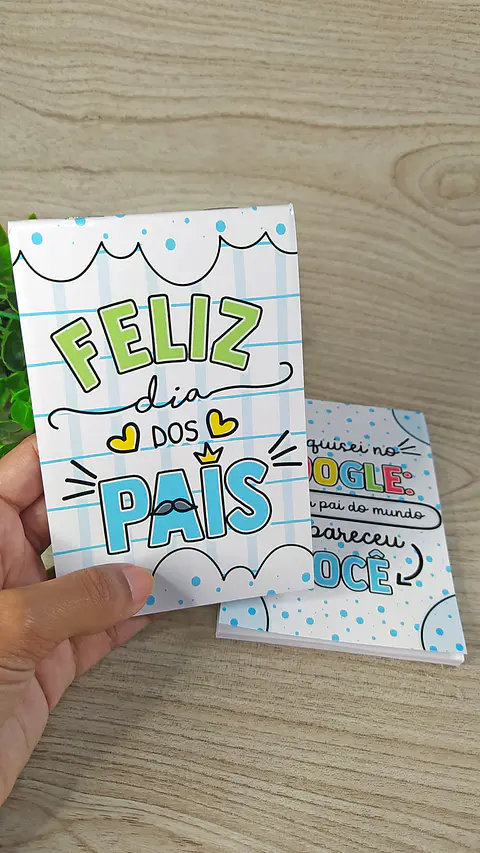 FELIZ
dia
DOS
PAIS
quisei no
OGLE:
pai do mundo
pareceu
OCÊ